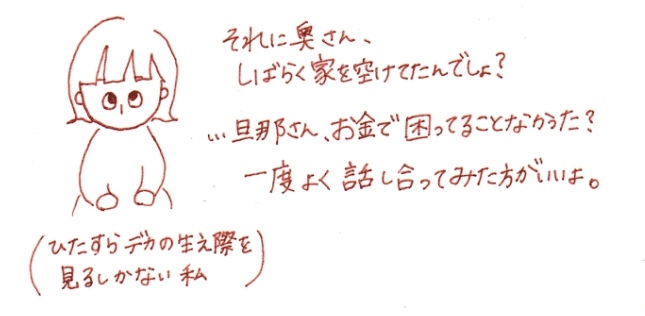 それに奥さん、
しばらく家を空けてたんでしょ?
…旦那さん、お金で困ってることなかった?
一度よく話し合ってみた方がいいよ。
(ひたすらデカの生え際を
見るしかない私)